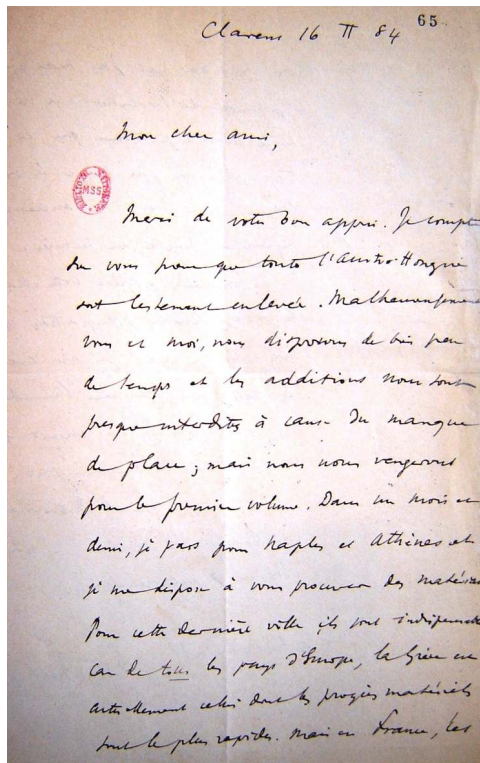 65
Clarens 16 II 84
Mon cher ami,
MSS
Merci de votre bon appui. Je compte
sur vous pour que toute l'Austro-Hongrie
soit lestement enlevée. Malheureusement
vous et moi, nous disposons de bien peu
de temps et les additions nous sont
presque interdites à cause du manque
de place ; mais nous nous vengerons
pour le premier volume. Dans un mois et
demi, je pars pour Naples et Athènes et
je me dispose à vous procurer des matériaux
Pour cette dernière ville ils sont indispensables
car de tous les pays d'Europe, la Grèce est
actuellement celui dont les progrès matériels
sont le plus rapides. Mais en France, les